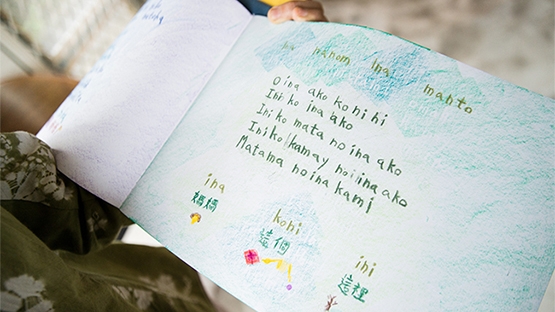 nanom ina manto
O ina ako ko ni hi
Ini ko ina ako
Ini ko mata no ina ako
Ini ko kamay no ina ako
Matama no ina kami
ina
媽媽
koni
這個
ini
這裡